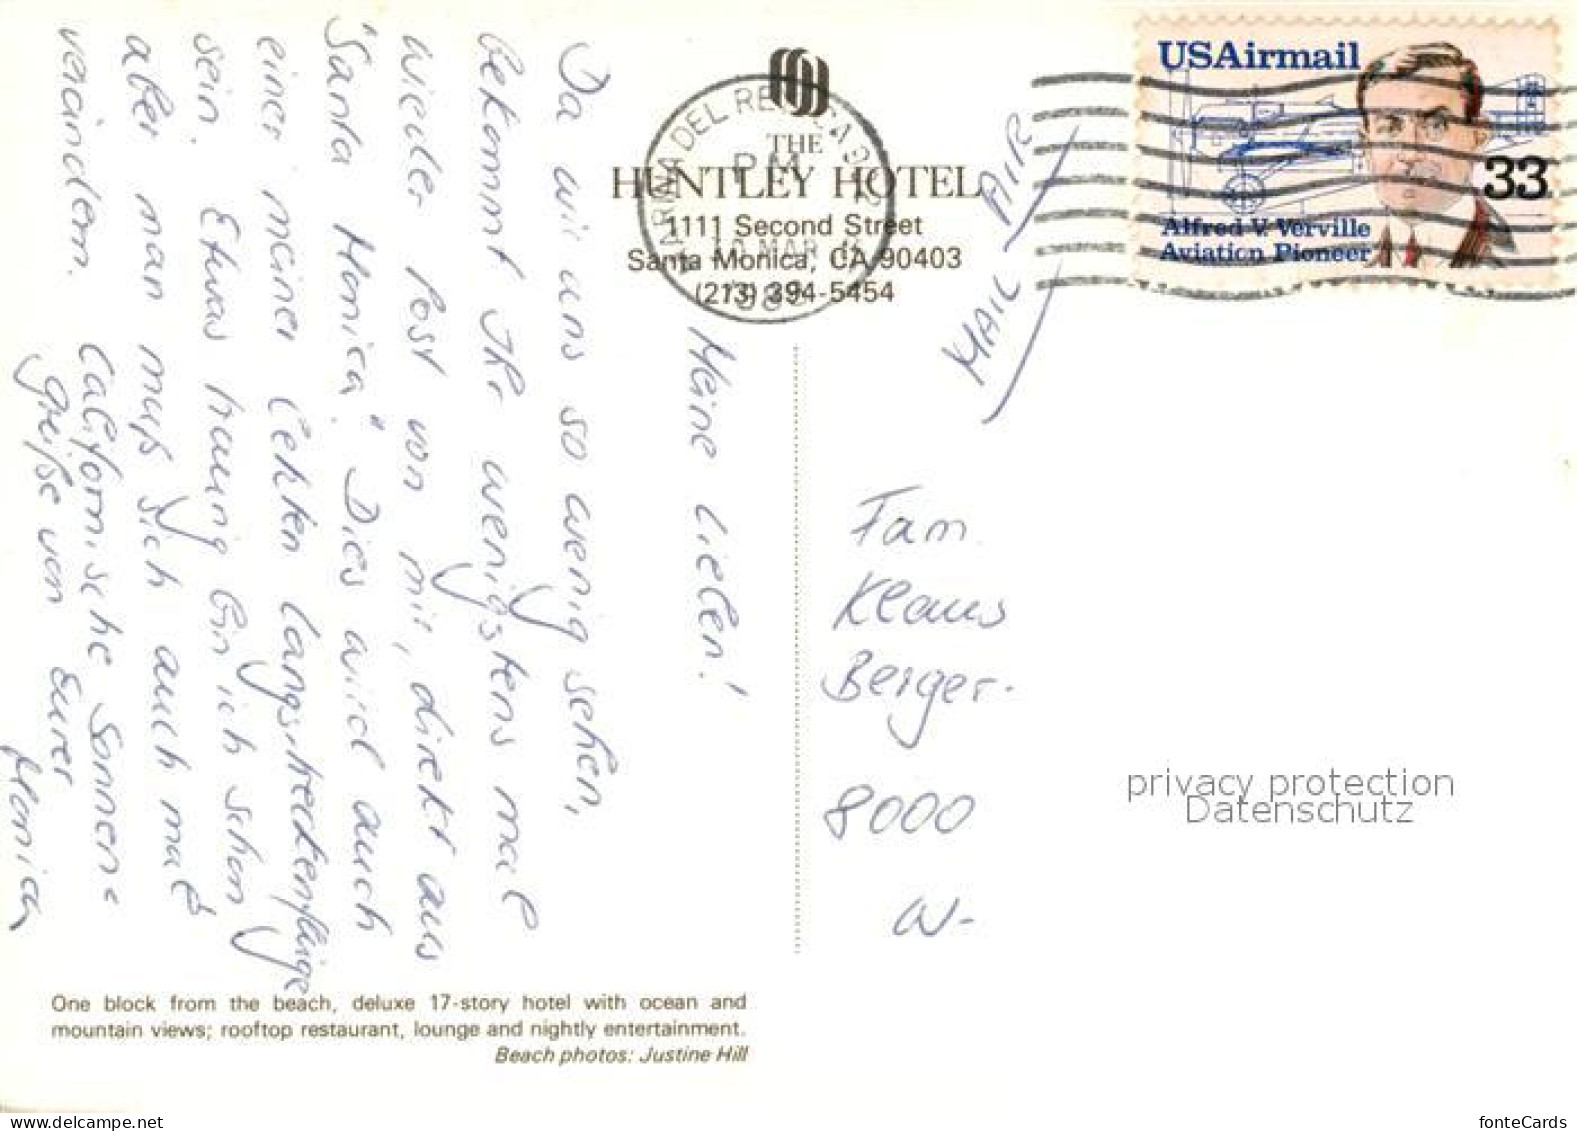 Meine Lieben!
Da wir uns so wenig sehen,
bekommt Ihr wenigstens mal
wieder Post von mir, direkt aus
"Santa Monica". Dies wird auch
einer meiner letzten Langstreckenflüge
sein. Etwas traurig bin ich schon
aber man muß sich auch mal
verändern.
Californische Sonnen-
grüße von Eurer
Monica
THE
HUNTLEY HOTEL
1111 Second Street
Santa Monica, CA 90403
(213) 394-5454
MARINA DEL REY CA
PM
10 MAR
USAirmail
33
Alfred V. Verville
Aviation Pioneer
AIR
MAIL
Fam.
Klaus
Berger.
8000
W-
privacy protection
Datenschutz
One block from the beach, deluxe 17-story hotel with ocean and
mountain views; rooftop restaurant, lounge and nightly entertainment.
Beach photos: Justine Hill
www.delcampe.net
fonteCards